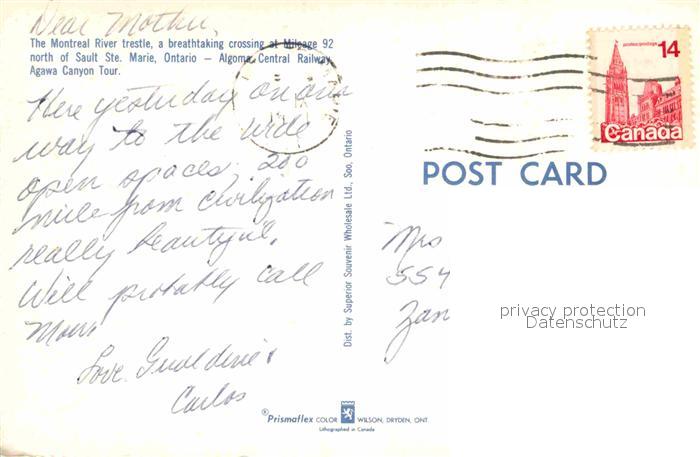 Dear Mother,
The Montreal River trestle, a breathtaking crossing at Mileage 92
north of Sault Ste. Marie, Ontario – Algoma Central Railway,
Agawa Canyon Tour.
Here yesterday on our
way to the wide
open spaces, 200
mile from civilization
really beautiful,
Will probably call
Mon
Love Gualdine &
Carlos
Dist. by Superior Souvenir Wholesale Ltd., Soo, Ontario
postes/postage
14
Canada
POST CARD
Mrs
554
Zan
privacy protection
Datenschutz
®Prismaflex COLOR WILSON, DRYDEN, ONT.
Lithographed in Canada